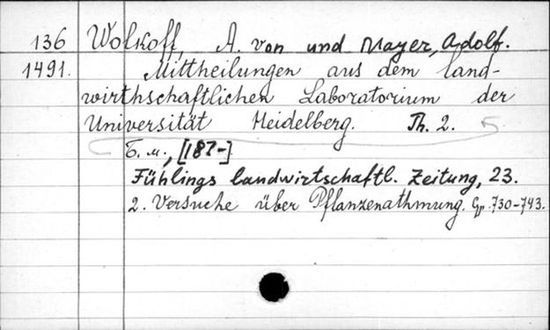 136 Wolkoff, A. von und Mayer, Adolf.
1491. Mittheilungen aus dem land-
wirthschaftlichen Laboratorium der
Universität Heidelberg. Th. 2.
Б. м., [187-]
Fühlings landwirtschaftl. Zeitung, 23.
2. Versuche über Pflanzenathmung. Ср. 730-743.